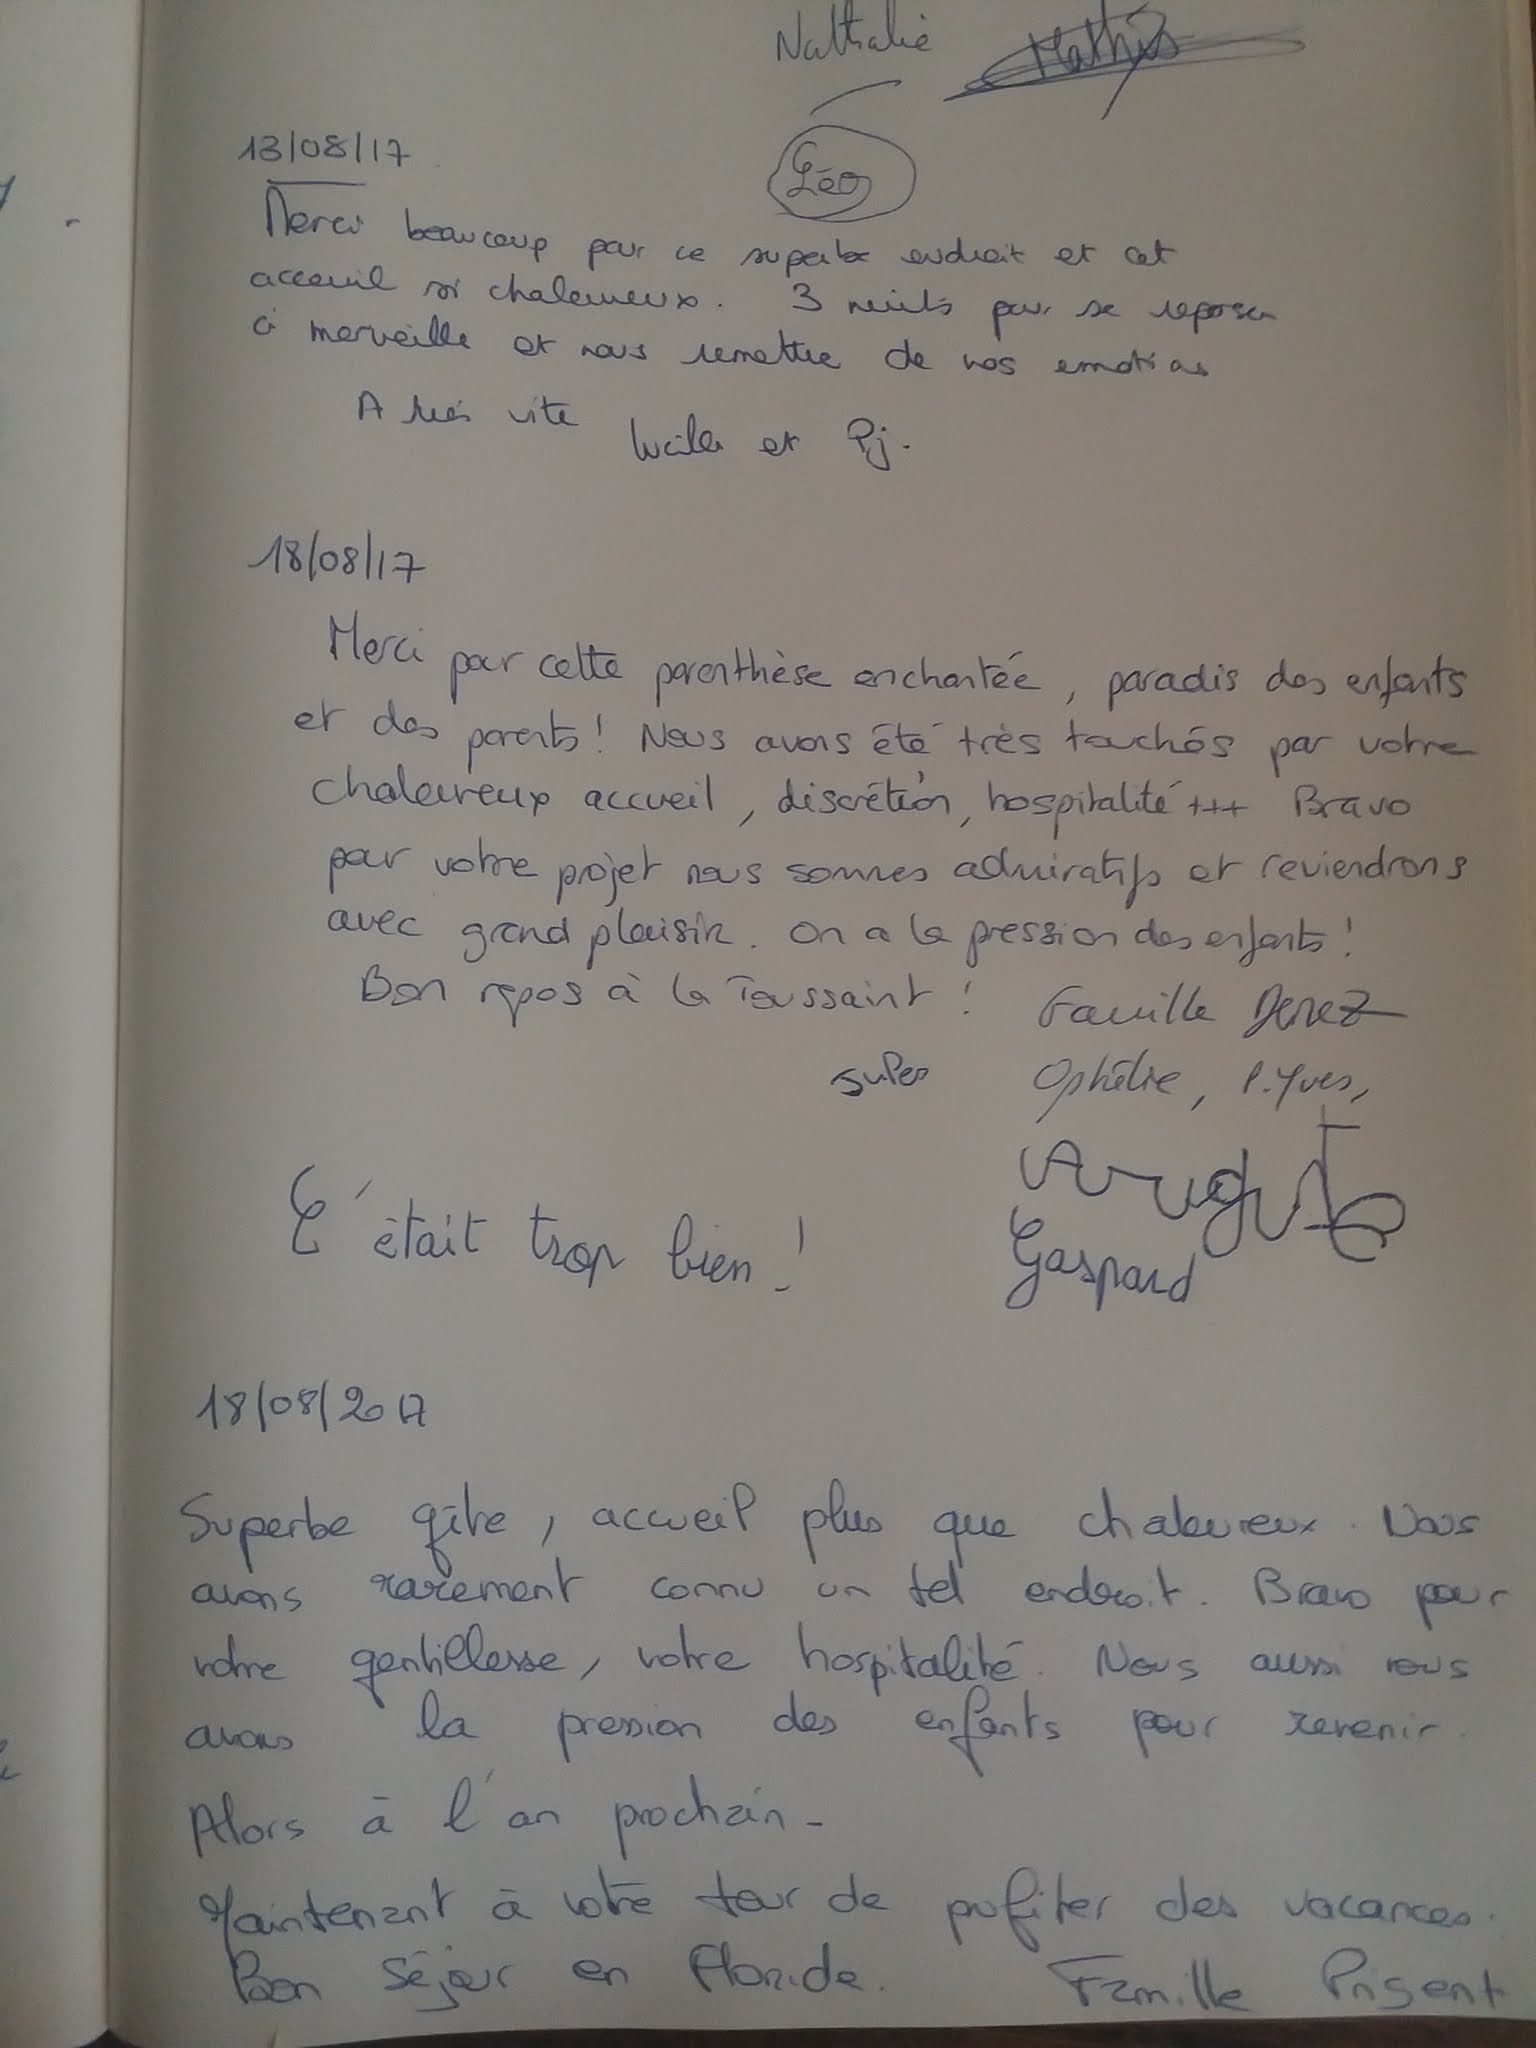 Nathalie Mathis
Léo
13/08/17
Merci beaucoup pour ce superbe endroit et cet
acceuil si chaleureux. 3 nuits pour se reposer
à merveille et nous remettre de nos emotions
A très vite
Lucile et Pj.
18/08/17
Merci pour cette parenthèse enchantée, paradis des enfants
et des parents ! Nous avons été très touchés par votre
chaleureux accueil, discrétion, hospitalité +++ Bravo
pour votre projet nous sommes admiratifs et reviendrons
avec grand plaisir. On a la pression des enfants !
Bon repos à la Toussaint ! Famille Denez
super Ophélie, P.Yves,
C'était trop bien !
Gaspard
18/08/2017
Superbe gîte, accueil plus que chaleureux. Nous
avons rarement connu un tel endroit. Bravo pour
votre gentillesse, votre hospitalité. Nous aussi nous
avons la pression des enfants pour revenir.
Alors à l'an prochain -
Maintenant à votre tour de profiter des vacances.
Bon séjour en Floride. Famille Prigent